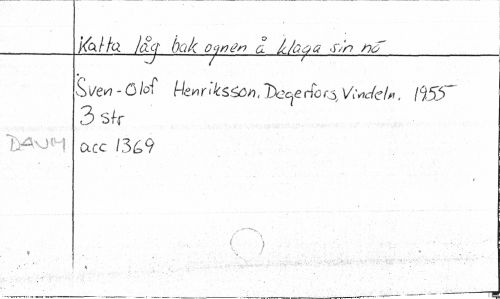 Katta låg bak ognen å klaga sin nö
Sven-Olof Henriksson, Degerfors, Vindeln. 1955
3 str
DAUM acc 1369